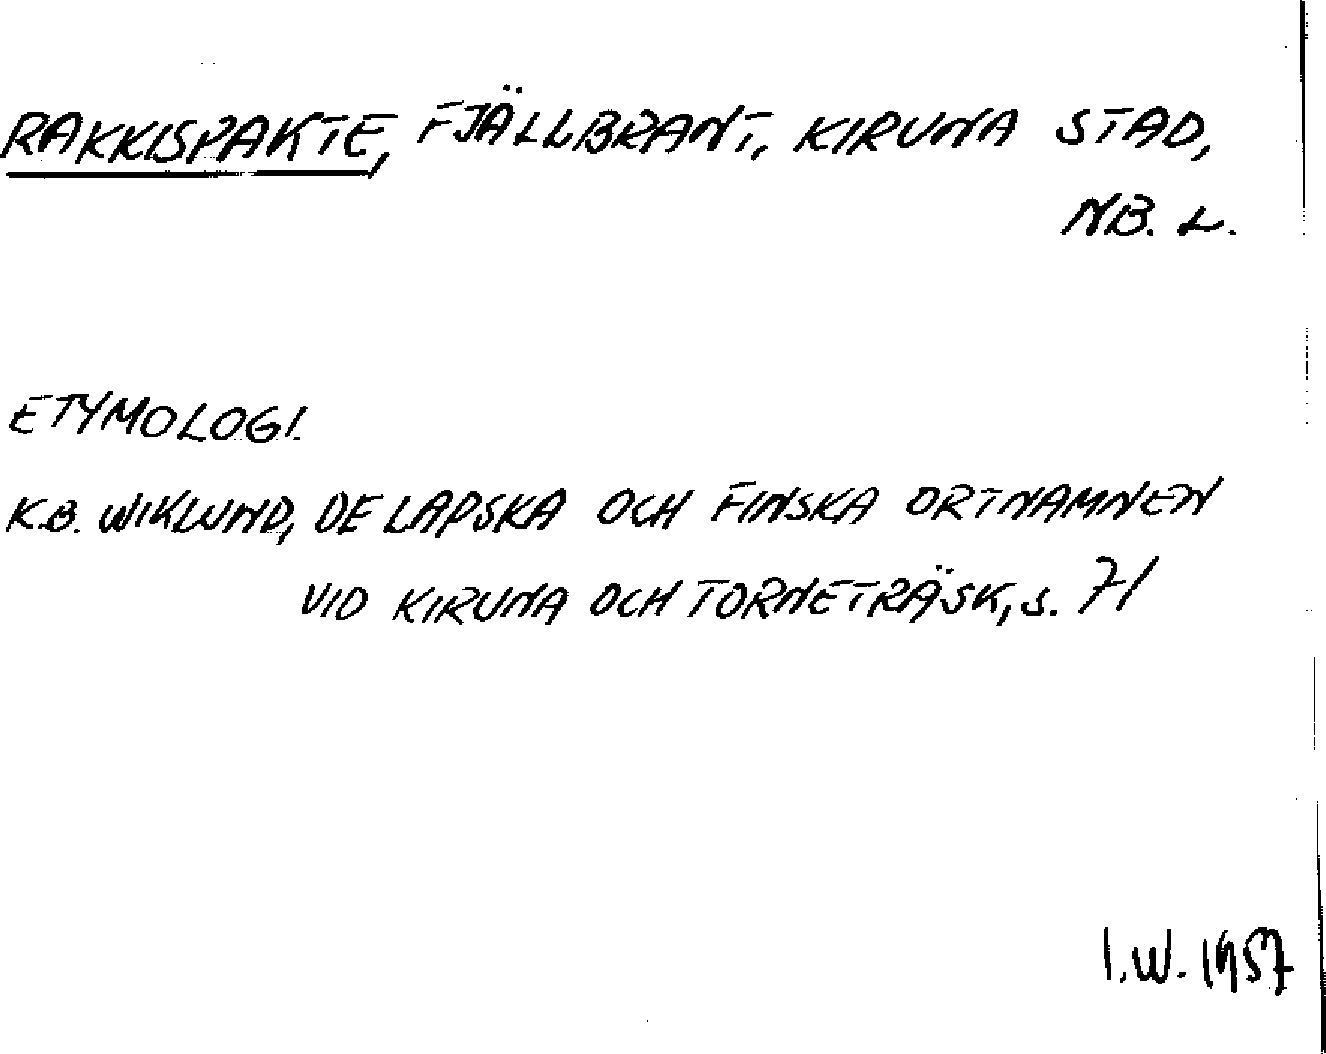 RAKKISPAKTE, FJÄLLBRANT, KIRUNA STAD,
NB. L.
ETYMOLOGI.
K.B. WIKLUND, DE LAPSKA OCH FINSKA ORTNAMNEN
VID KIRUNA OCH TORNETRÄSK, s. 71
I.W. 1957